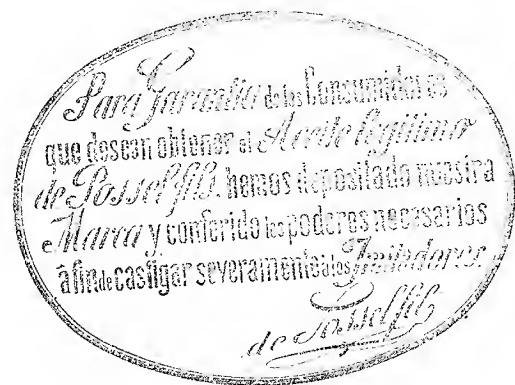 Para Garantia de los Consumidores
que desean obtener el Aceite legitimo
de Possel fils. hemos depositado nuestra
Marca y conferido los poderes necesarios
á fin de castigar severamente á los Imitadores
de Possel fils